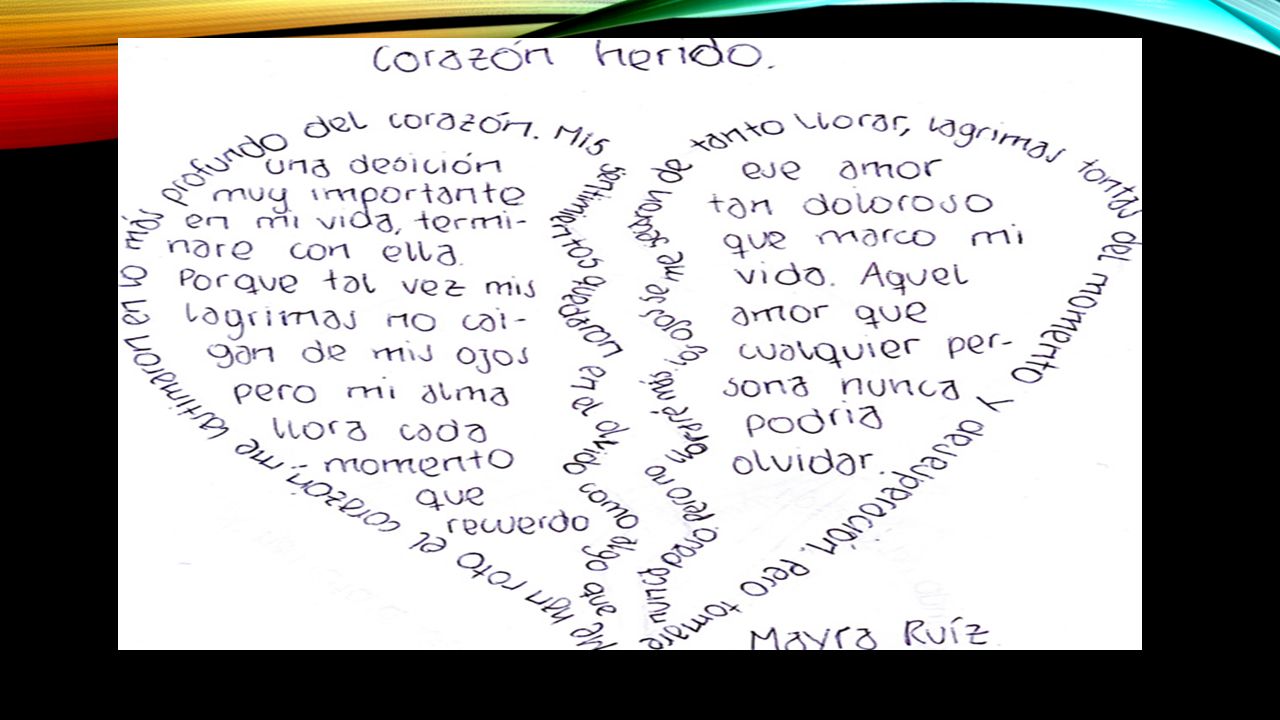 Corazón herido.
Me han roto el corazón, me lastimaron en lo más profundo del corazón. Mis sentimientos quedaron en el olvido como algo que
nunca pasó. Pero no más, ojos se me de tanto llorar, lagrimas tontas del momento y desesperación. Pero tomare
una desición
muy importante
en mi vida, termi-
nare con ella.
Porque tal vez mis
lagrimas no cai-
gan de mis ojos
pero mi alma
llora cada
momento
que
recuerdo
ese amor
tan doloroso
que marco mi
vida. Aquel
amor que
cualquier per-
sona nunca
podria
olvidar.
Mayra Ruíz